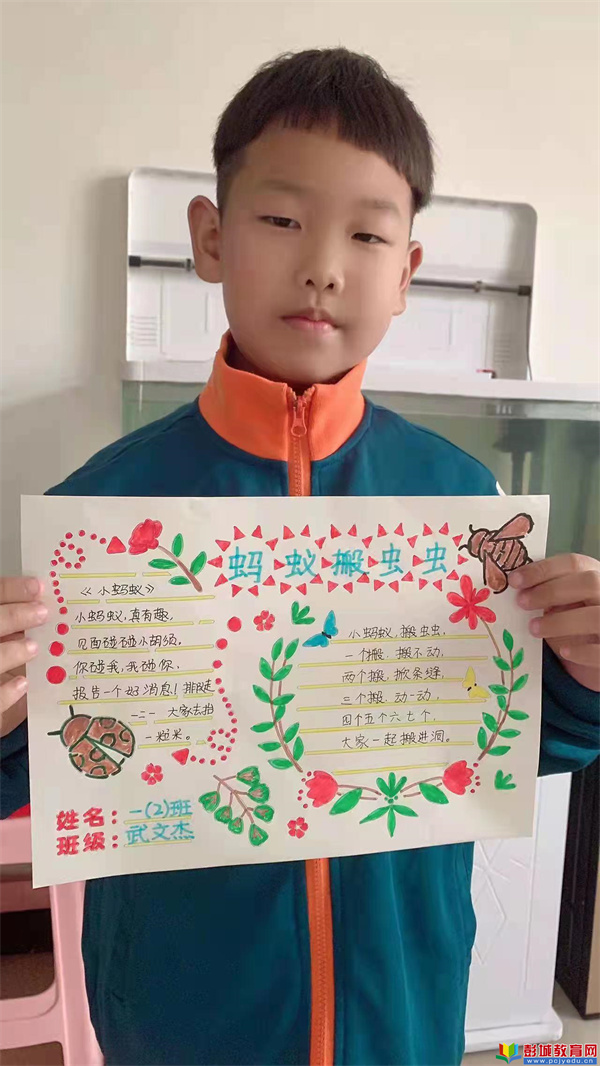 蚂蚁搬虫虫
《小蚂蚁》
小蚂蚁,真有趣,
见面碰碰小胡须。
你碰我,我碰你、
报告一个好消息!排队走
一二一 大家去抬
一粒米。
小蚂蚁,搬虫虫,
一个搬、搬不动,
两个搬,掀条缝,
三个搬、动一动,
四个五个六七个,
大家一起搬进洞。
姓名:一(2)班
班级:武文杰
彭城教育网
www.pcjyedu.cn